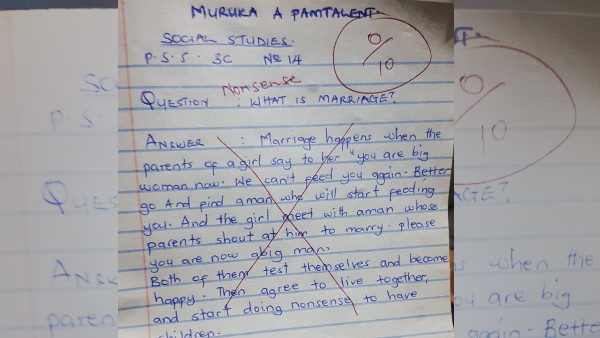 MURUKA A PAMTALENT.
SOCIAL STUDIES.
P.S.5. 3C № 14
0/10
Nonsense
QUESTION : WHAT IS MARRIAGE?
ANSWER : Marriage happens when the
parents of a girl say to her "you are big
woman now. We can't feed you again. Better
go And find aman who will start feeding
you. And the girl meet with aman whose
parents shout at him to marry. please
you are now abig man.
Both of them test themselves and become
happy. Then agree to live together,
and start doing nonsense to have
children.